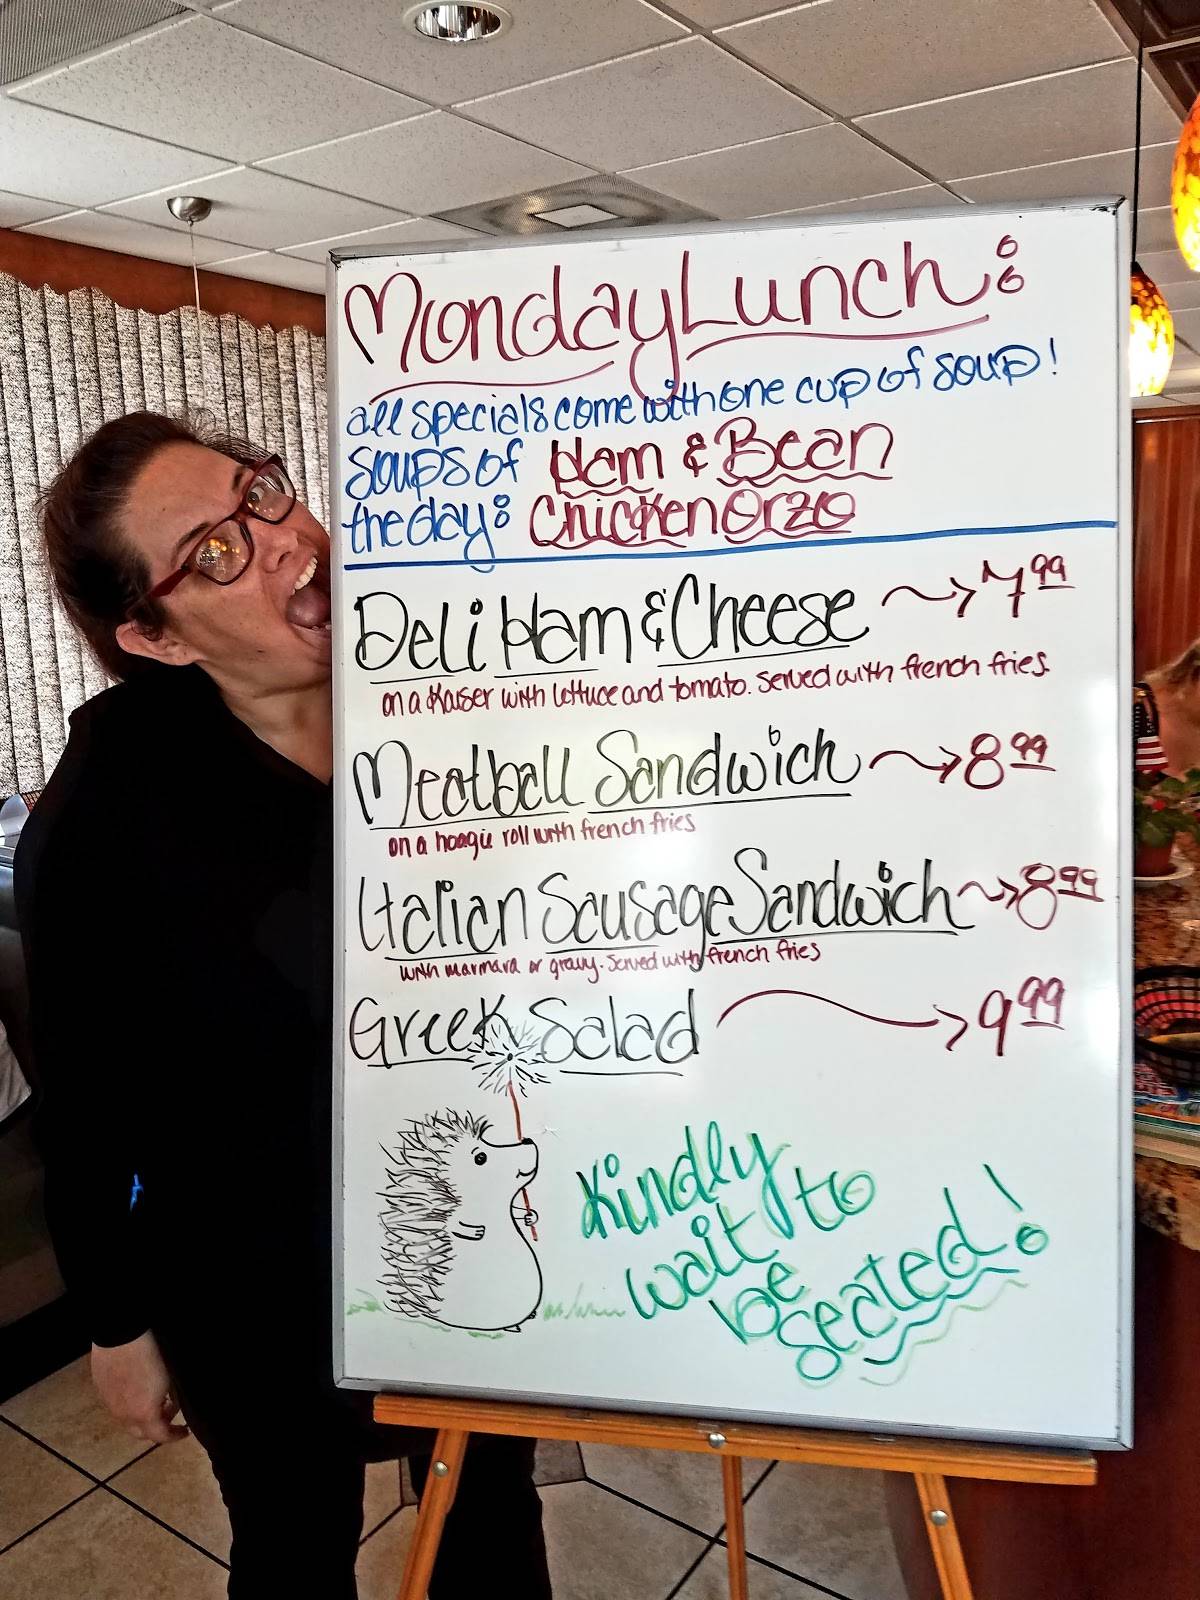 Monday Lunch:
all specials come with one cup of soup!
soups of Ham & Bean
the day: Chicken Orzo
Deli Ham & Cheese → 7.99
on a Kaiser with lettuce and tomato. Served with french fries.
Meatball Sandwich → 8.99
on a hoagie roll with french fries
Italian Sausage Sandwich → 8.99
with marinara or gravy. Served with french fries
Greek Salad → 9.99
Kindly
wait to
be
seated!